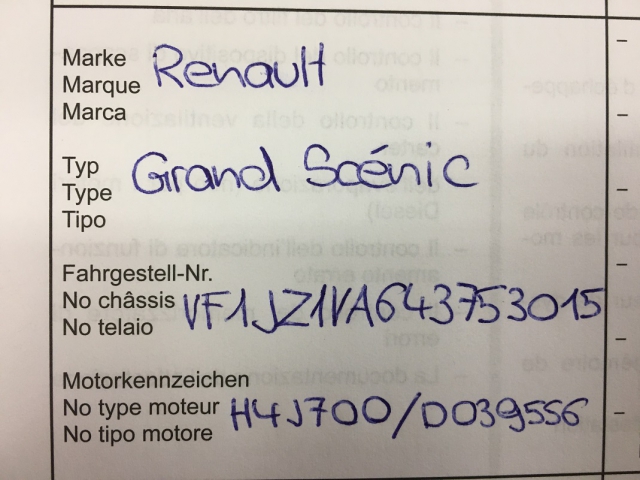 Marke Renault
Marque
Marca
Typ
Type Grand Scénic
Tipo
Fahrgestell-Nr.
No châssis VF1JZ1VA643753015
No telaio
Motorkennzeichen
No type moteur H4J700/D039556
No tipo motore